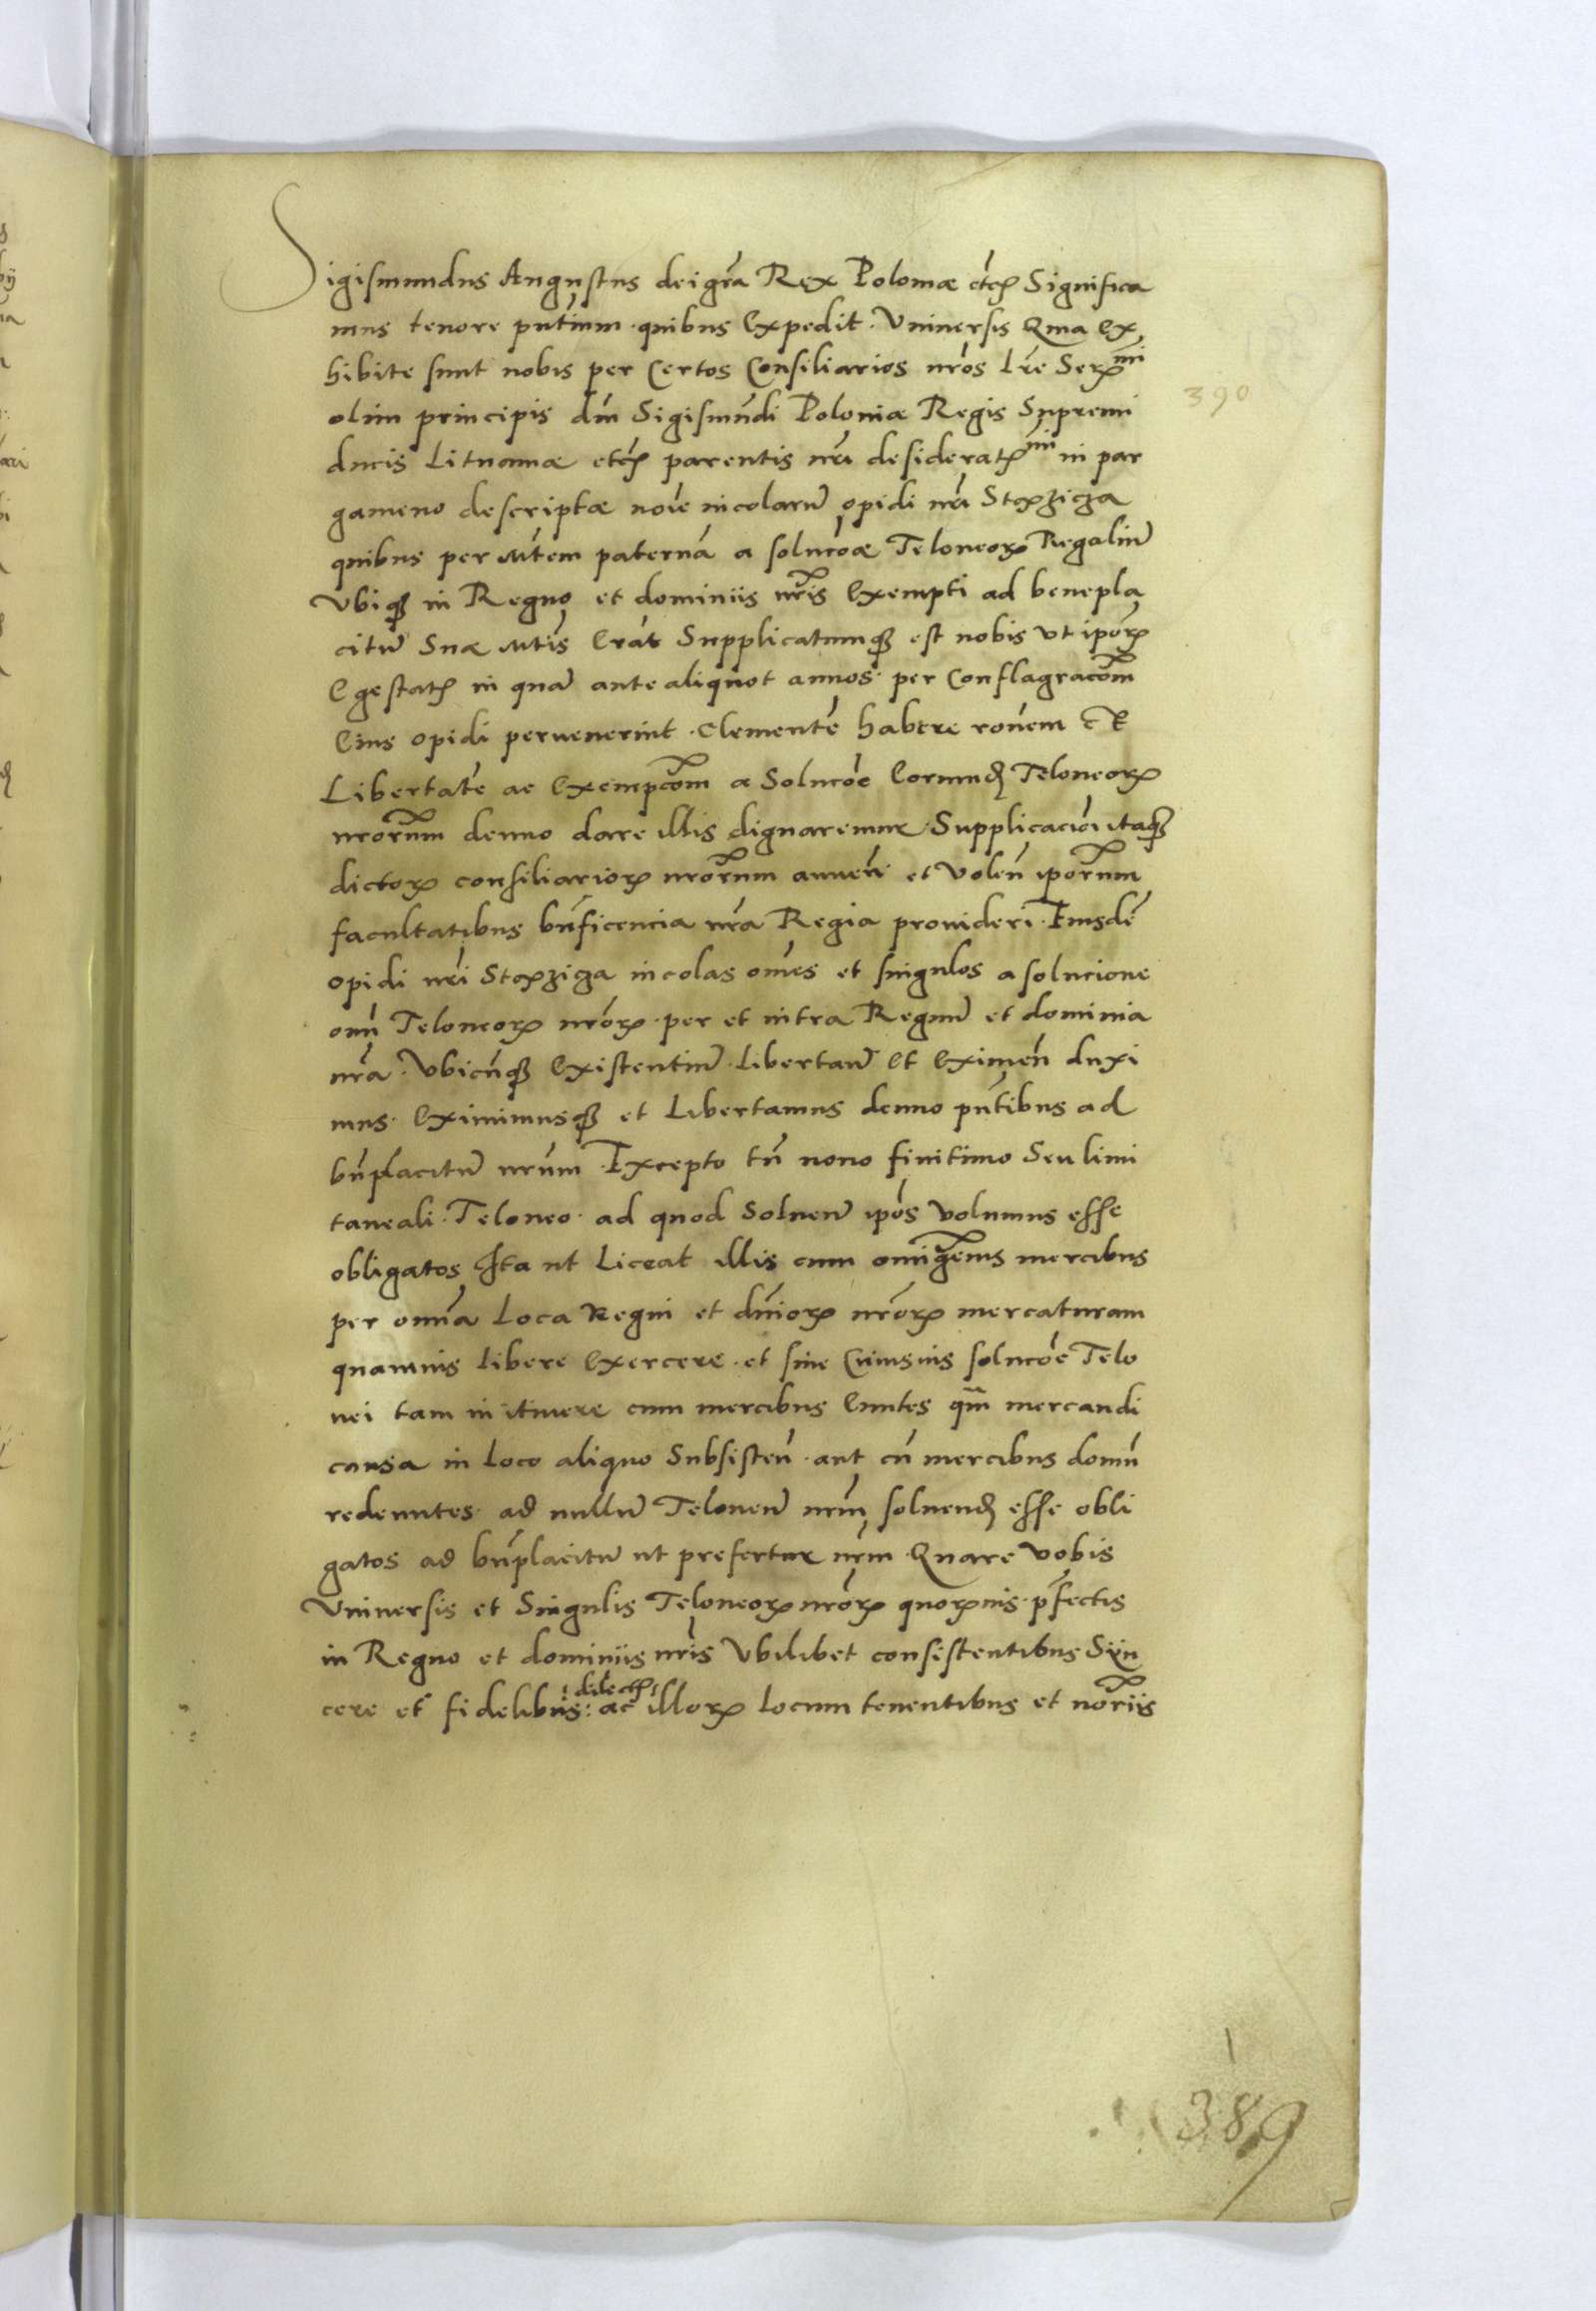 Sigismundus Augustus dei gr̃a Rex Poloniæ etcꝫ Significa
mus tenore pñtium quibus Expedit Vniuersis Qma Ex
hibite sunt nobis per Certos Consiliarios nr̃os Lr̃e Serꝫmi
olim principis dñi Sigismũdi Poloniæ Regis Supremi
ducis Lituaniæ etcꝫ parentis nr̃i desideratꝫmi in par
gameno descriptæ noĩe incolarũ opidi nr̃i Storziza
quibus per Mtem paternã a solucõe Teloneorꝫ Regaliũ
Vbiqꝫ in Regno et dominiis nr̃is Exempti ad benepla
citũ Suæ Mtis Erãt Supplicatumqꝫ est nobis vt ipõrꝫ
Egestatꝫ in quã ante aliquot annos per Conflagracõm
Eius opidi peruenerint Clementẽ habere rõnem et
Libertatẽ ac Exempcõm a Solucõe Eorundꝫ Teloneorꝫ
nrõrum denuo dare illis dignaremur Supplicacõi itaqꝫ
dictorꝫ consiliariorꝫ nrõrum annuẽn et volẽn ipõrum
facultatibus bñficencia nr̃a Regia prouideri Eiusdẽ
opidi nr̃i Storziza incolas oẽs et singulos a solucione
oĩm Teloneorꝫ nrõrꝫ per et intra Regnũ et dominia
nr̃a Vbicũqꝫ Existentiũ Libertañ et Eximeñ duxi
mus Eximimusqꝫ et Libertamus denuo pñtibus ad
bñplacitũ nr̃um Excepto tñ nouo finitimo Seu limi
taneali Teloneo ad quod Solueñ ipõs volumus esse
obligatos Ita ut Liceat illis cum omnigẽnis mercibus
per omñia Loca Regni et dñiorꝫ nrõrꝫ mercaturam
quamuis Libere Exercere et sine Cuiusuis solucõe Telo
nei tam in itinere cum mercibus Euntes qm̃ mercandi
causa in Loco aliquo Subsisteñ aut cũ mercibus domũ
redeuntes ad nullũ Teloneũ nr̃m soluendꝫ esse obli
gatos ad bñplacitũ ut prefertur nr̃m Quare vobis
Vniuersis et Singulis Teloneorꝫ nrõrꝫ quorꝫuis p̃fectis
in Regno et dominiis nr̃is Vbilibet consistentibus Syn
cere et fidelibus: dilectꝫ ac illorꝫ Locum tenentibus et notãriis
390
389